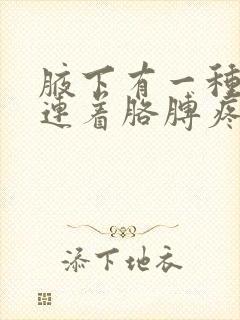 腋下有一种
连着胳膊疼
添下地衣